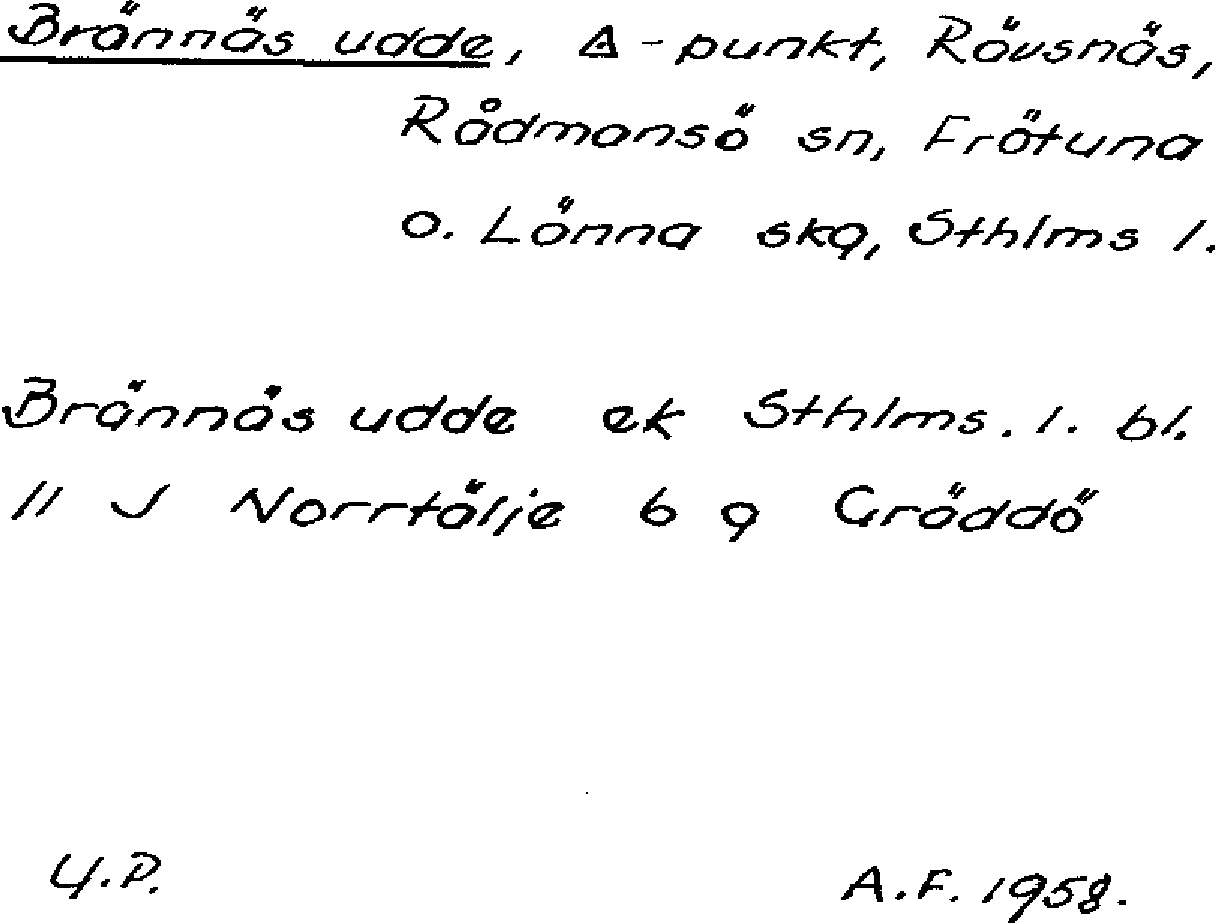 Brännäs udde, Δ-punkt, Rävsnäs,
Rådmansö sn, Frötuna
o. Länna skg, Sthlms l.
Brännäs udde ek Sthlms. l. bl.
11 J Norrtälje 6 g Gräddö
U.P. A.F. 1958.